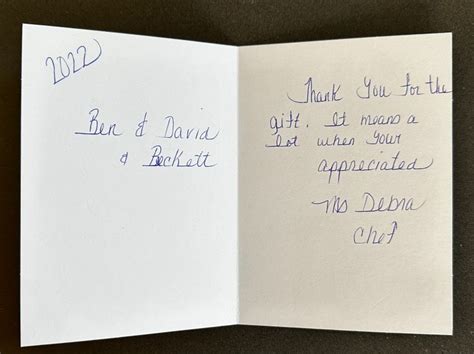 2022
Ben & David
& Beckett
Thank You for the
gift. It means a
lot when your
appreciated
Ms Debra
Chef